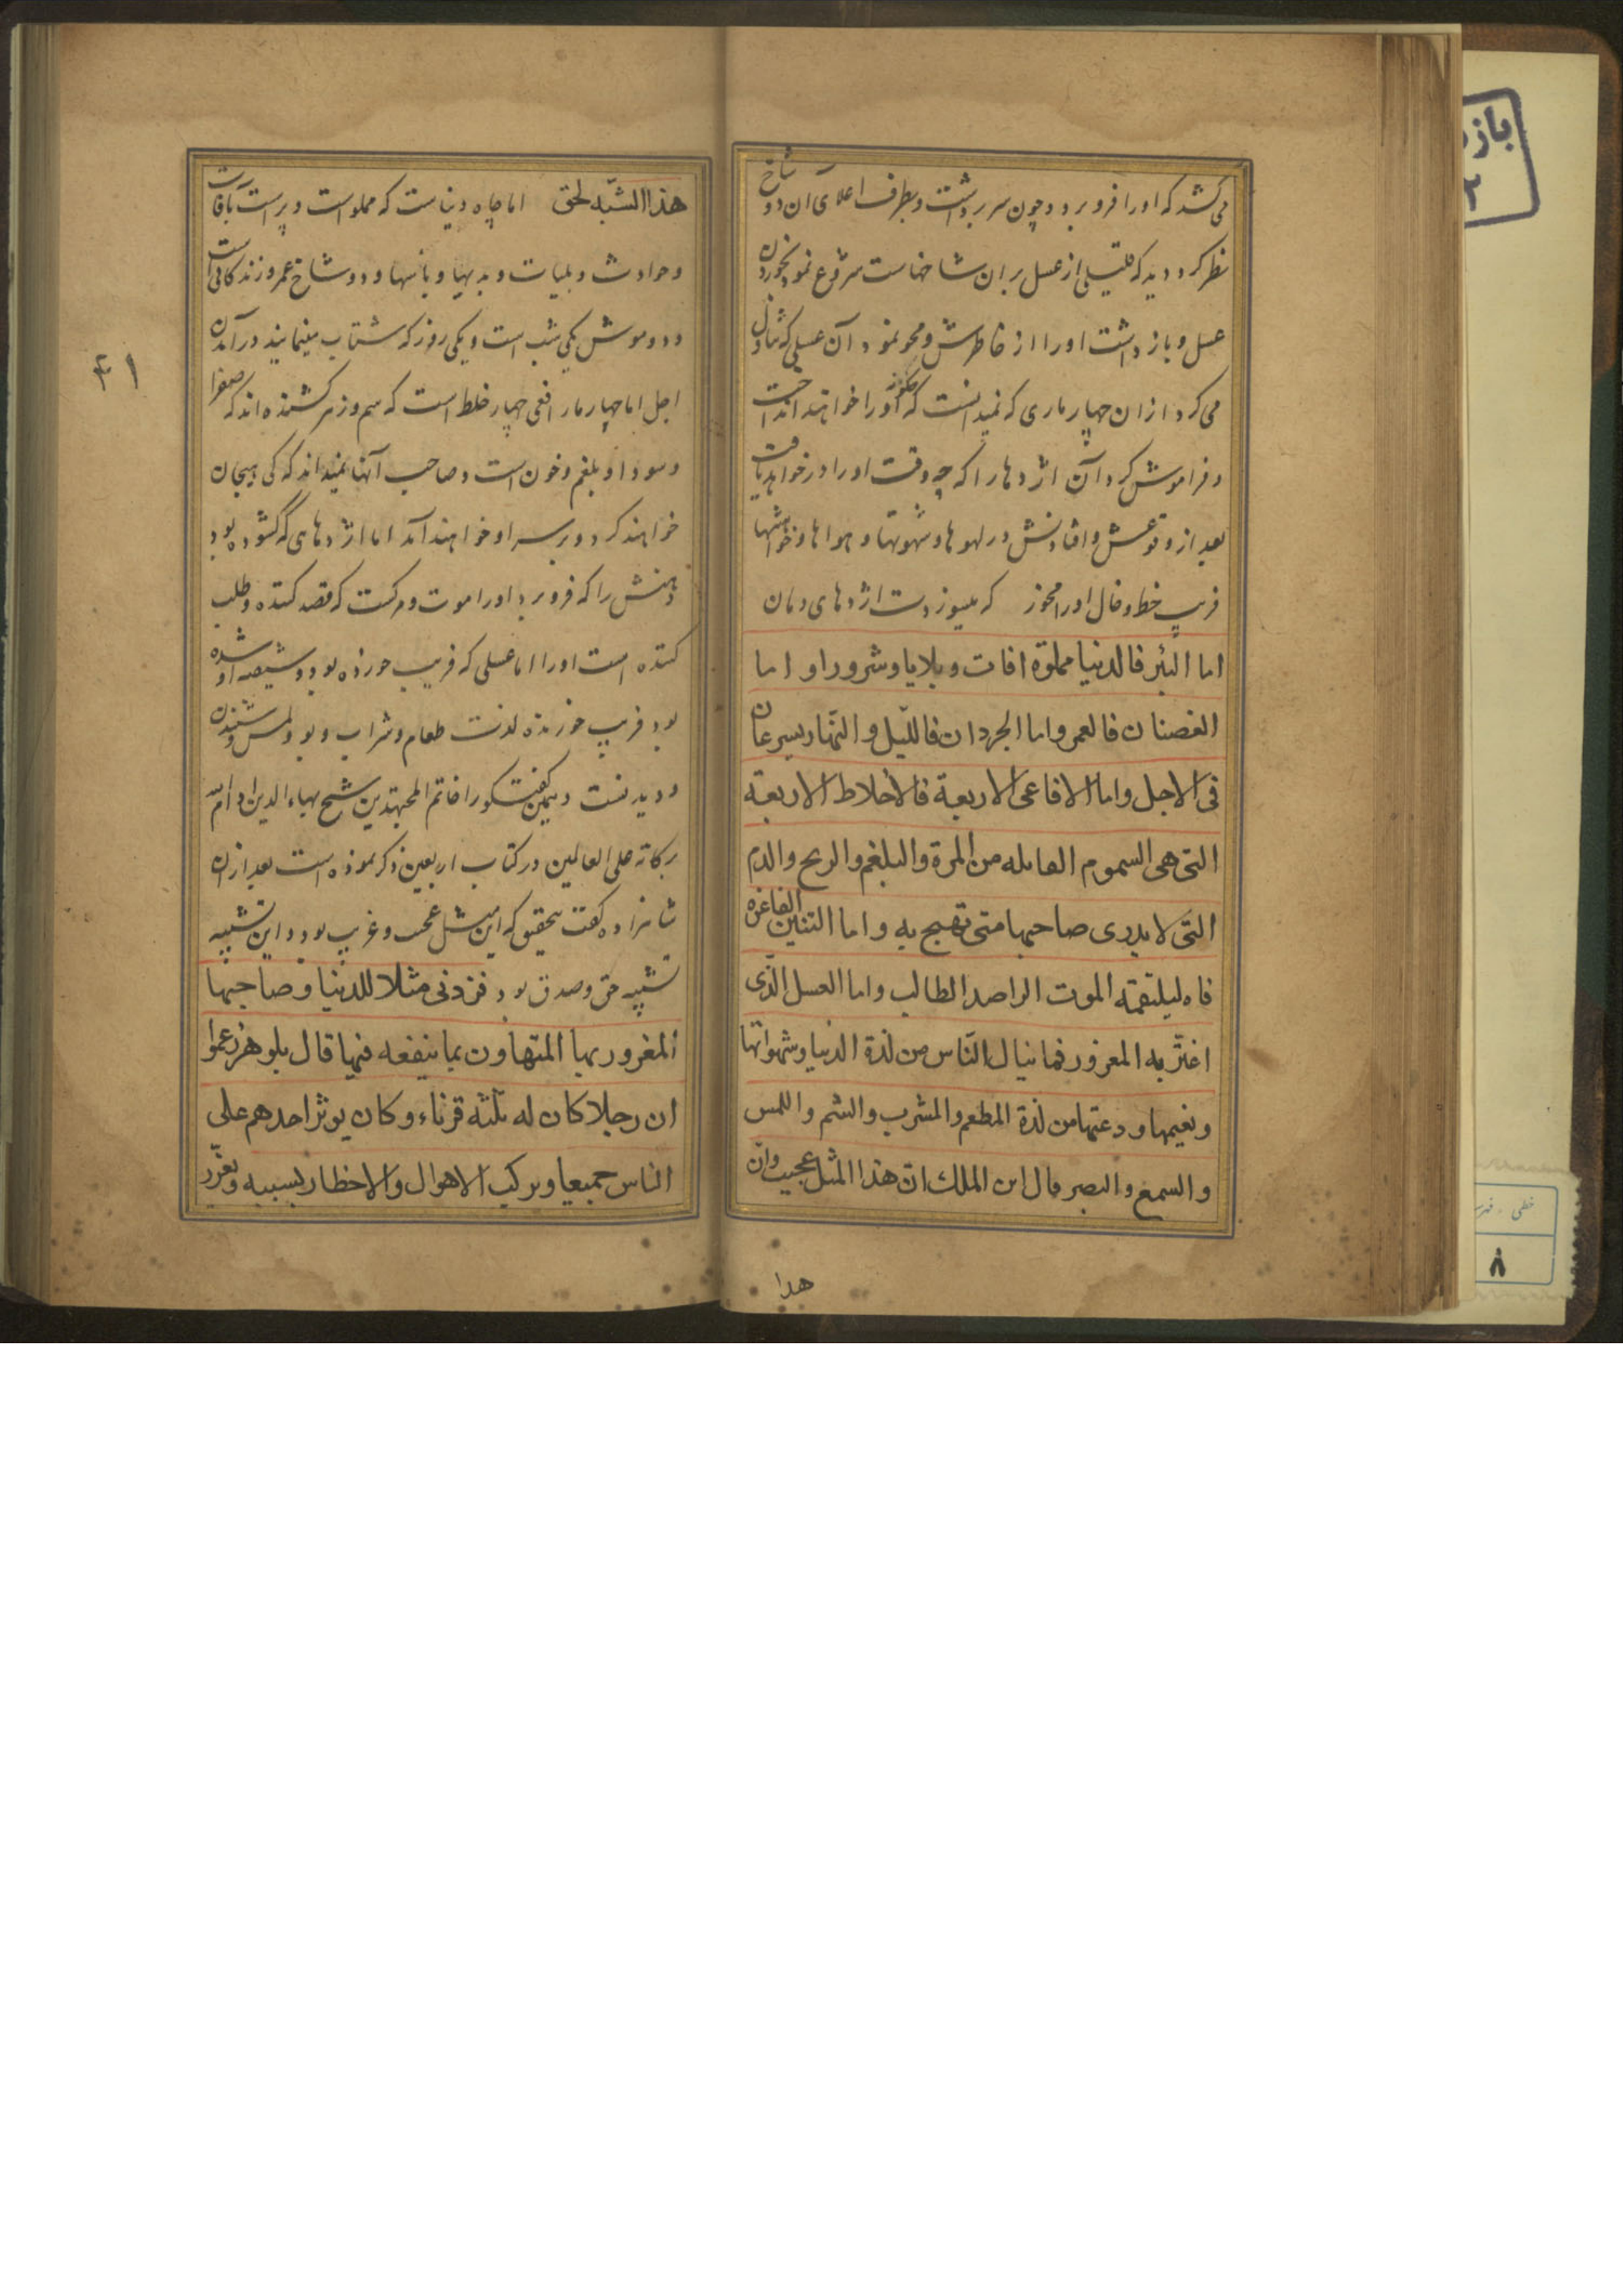 می‌کشد که اورا فرو برد و چون سر برداشت و بطرف اعلای آن دو شاخ
نظر کرد دید که قلیلی از عسل بر ان شاخهاست شروع نمود بخوردن
عسل و بازداشت اورا از خاطرش و محو نمود آن عسلی که تناول
می‌کرد از ان چهار ماری که نمیدانست که چگونه اورا خواهند انداخت
و فراموش کرد آن اژدها را که چه وقت اورا در خواهد یافت
بعد از وقوعش و افتادنش در لهوها و شهوتها و هواها و خواهشها
فریب خط و خال اورا مخور که میسوزدت اژدهای دمان
اما البئر فالدنیا مملوة افات و بلایا و شرورا و اما
الغصنان فالعمر واما الجردان فاللیل و النهار یسرعان
فی الاجل واما الافاعی الاربعة فالاخلاط الاربعة
التی هی السموم القاتله من المرة والبلغم والریح والدم
التی لا یدری صاحبها متی تهیج به و اما التنین الفاغره
فاه لیلتقمه الموت الراصد الطالب واما العسل الذی
اغتر به المغرور فما ینال الناس من لذة الدنیا و شهواتها
ونعیمها و دعتها من لذة المطعم والمشرب والشم واللمس
والسمع والبصر قال ابن الملک ان هذا المثل عجیب وان
هذا
هذا الشبه لحق اما چاه دنیاست که مملو است و پر است بآفات
و حوادث و بلیات و بدیها و باسها و دو شاخ عمر و زندگانی است
و دو موش یکی شب است و یکی روز که شتاب مینمایند در آمدن
اجل اما چهار مار افعی چهار خلط است که سم و زهر کشنده‌اند که صفرا
و سودا و بلغم و خون است و صاحب آنها نمیداند که کی هیجان
خواهند کرد و بر سر او خواهند آمد اما اژدهای که گشوده بود
دهنش را که فرو برد اورا موت و مرگست که قصد کننده و طلب
کننده است اورا اما عسلی که فریب خورده بود و شیفته او شده
بود فریب خورنده لذت طعام و شراب و بو و لمس و شنیدن
و دیدنست و همین گفتگو را خاتم المجتهدین شیخ بهاءالدین ادام الله
برکاته علی العالمین در کتاب اربعین ذکر نموده است بعد از ان
شاهزاده گفت بتحقیق که این مثل عجب و غریب بود و این تشبیه
تشبیه حق و صدق بود فزدنی مثلا للدنیا و صاحبها
المغرور بها المتهاون بما ینفعه فیها قال بلوهر زعموا
ان رجلا کان له ثلثه قرناء و کان یوثر احدهم علی
الناس جمیعا و یرکب الاهوال والاخطار بسببه و یغرر
۳۱
باز
۲
خطی ـ فهرست
۸